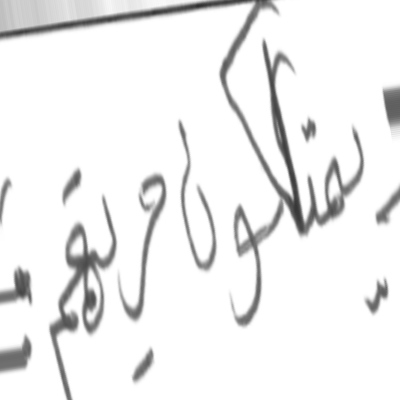 يمتلكون حريتهم